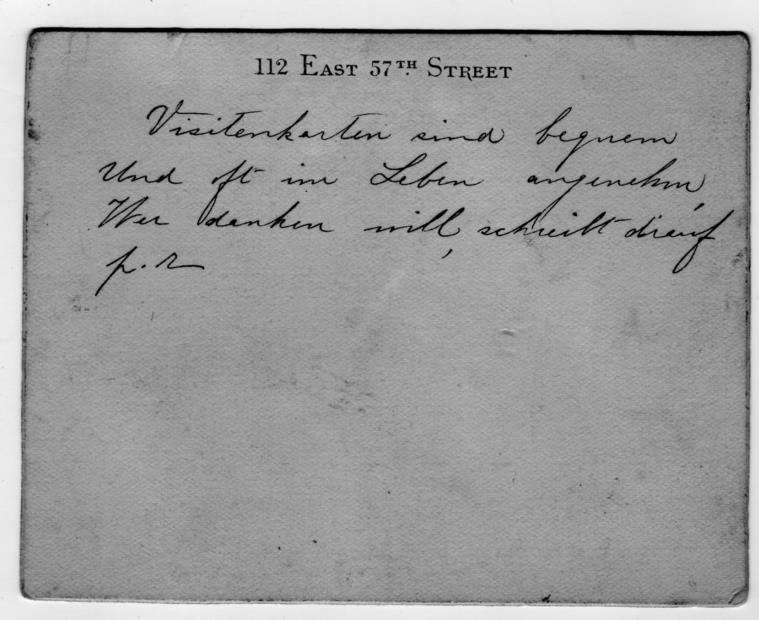 112 East 57th Street
Visitenkarten sind bequem
Und oft im Leben angenehm,
Wer danken will, schreibt drauf
p. r